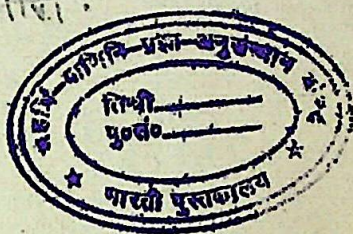 महर्षि-पाणिनि-प्रज्ञा-अनुसंधान
तिथी
पु०सं०
भारती पुस्तकालय